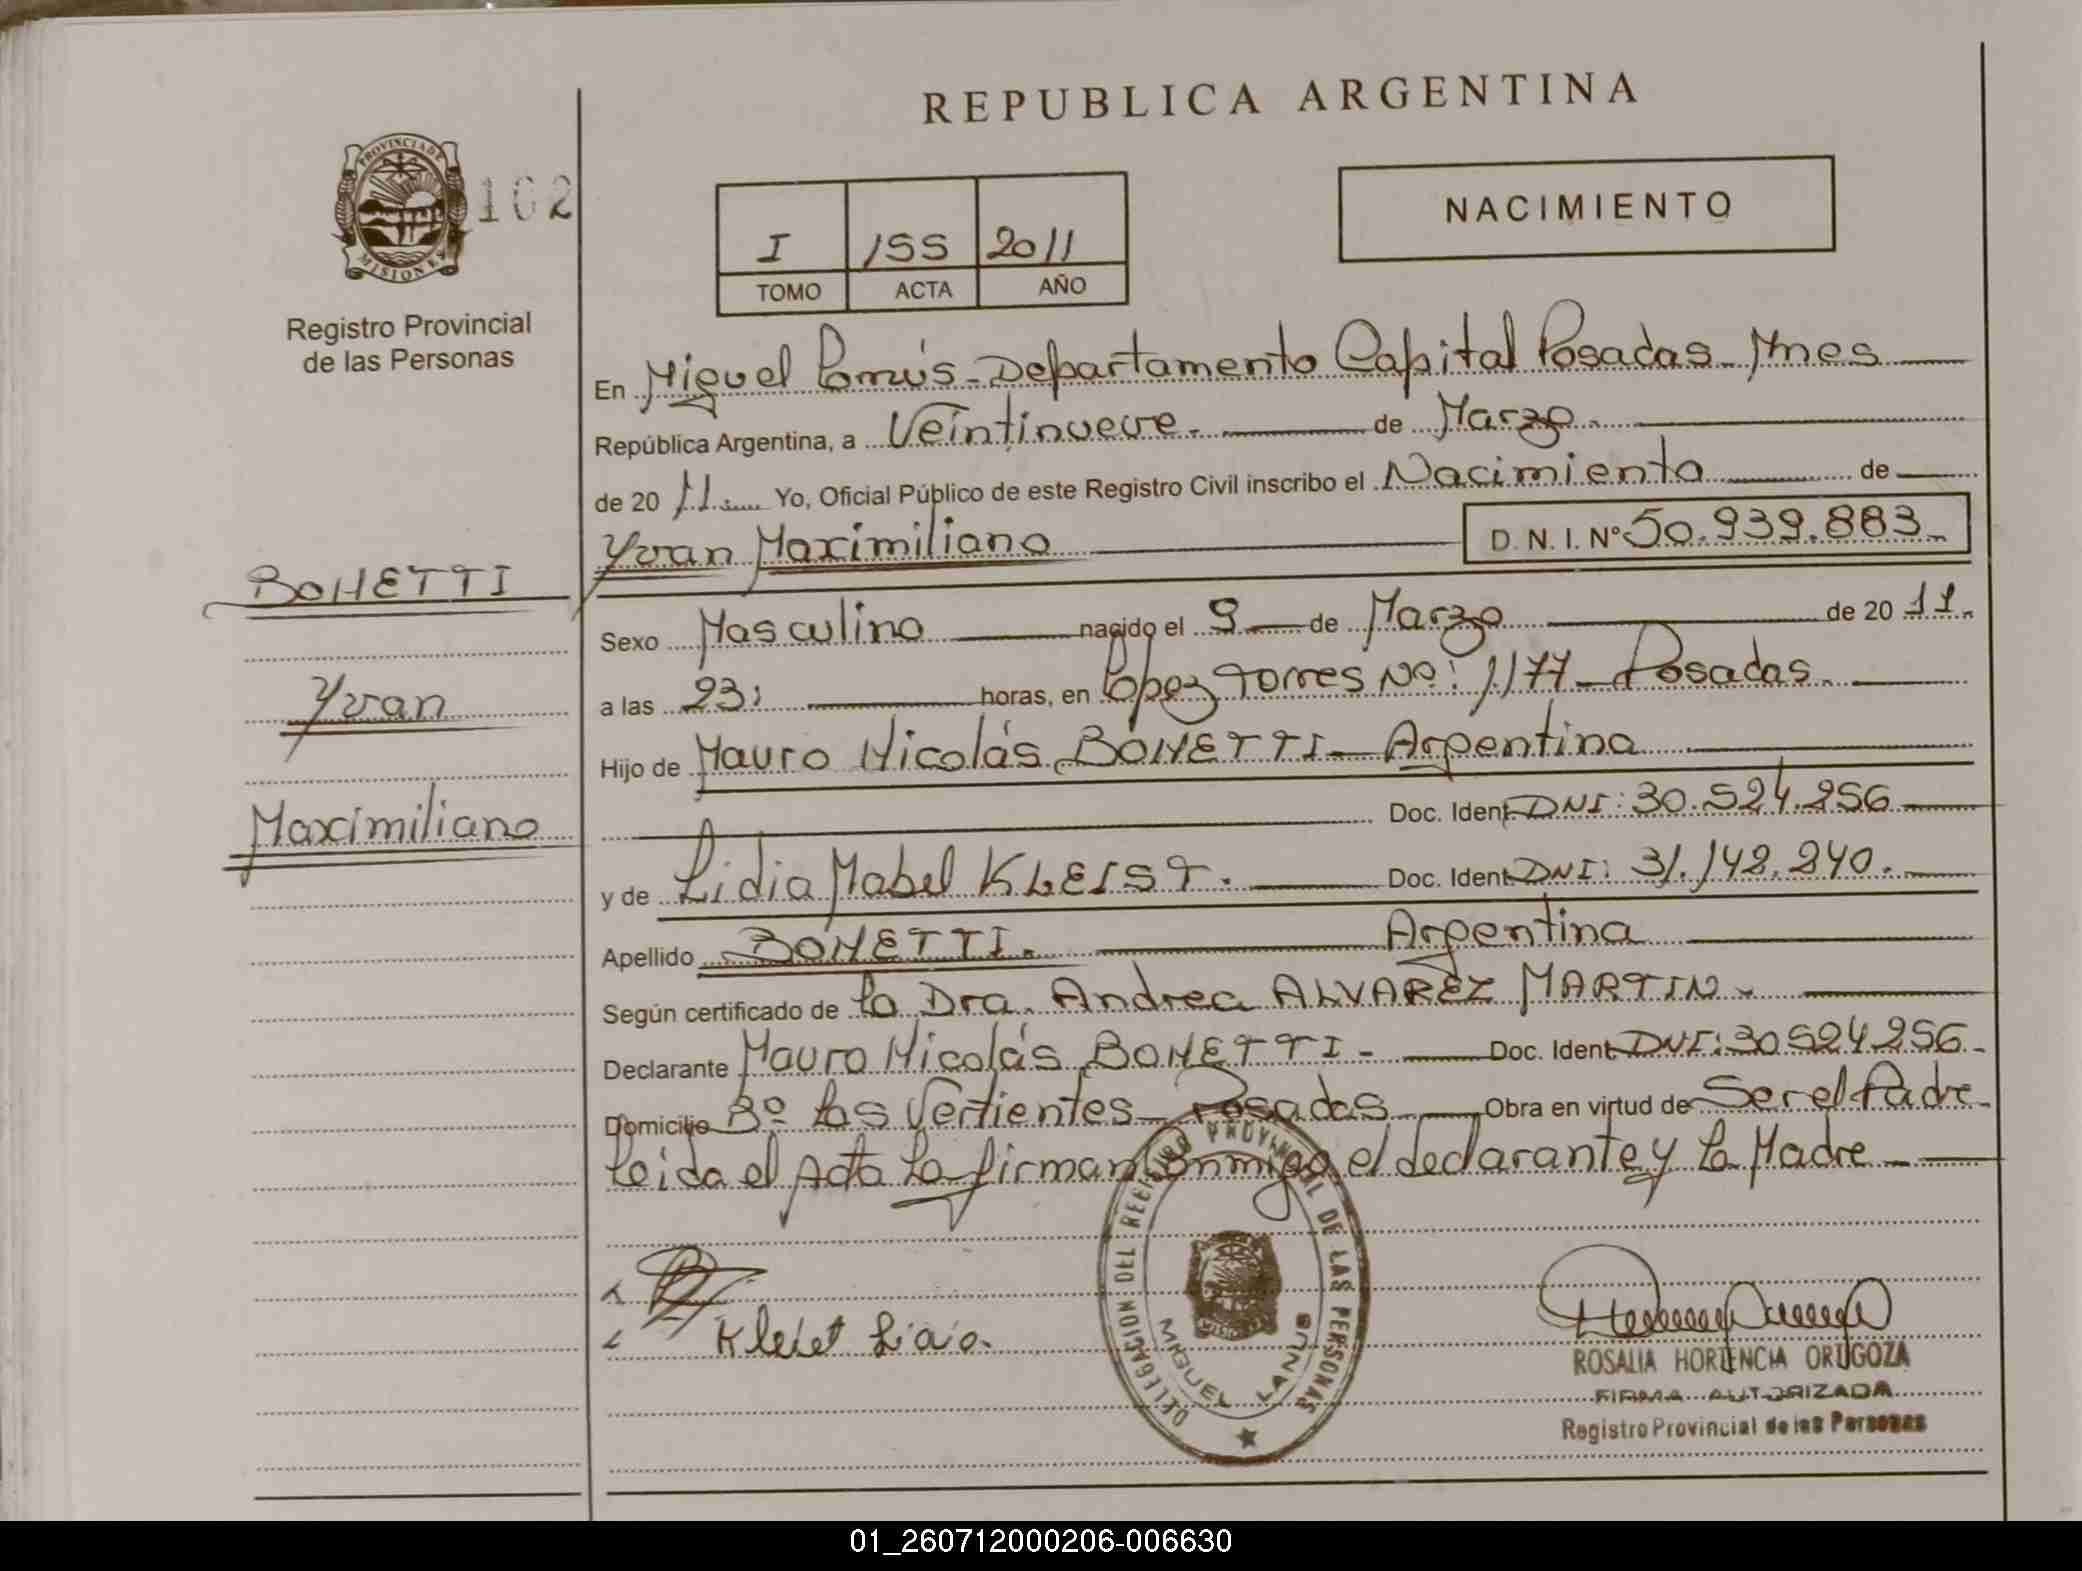 REPUBLICA ARGENTINA
PROVINCIA DE
MISIONES
102
Registro Provincial
de las Personas
I 155 2011
TOMO ACTA AÑO
NACIMIENTO
En Miguel Lanús - Departamento Capital Posadas - Mnes
República Argentina, a Veintinueve. de Marzo
de 20 11. Yo, Oficial Público de este Registro Civil inscribo el Nacimiento de
Yvan Maximiliano D. N. I. Nº 50.939.883
BONETTI
Yvan
Maximiliano
Sexo Masculino nacido el 9 de Marzo de 20 11.
a las 23: horas, en López Torres Nº: 1177 - Posadas.
Hijo de Mauro Nicolás BONETTI - Argentina
Doc. Ident. DNI: 30.524.256
y de Lidia Mabel KLEIST. Doc. Ident. DNI: 31.142.240.
Apellido BONETTI. Argentina
Según certificado de la Dra. Andrea ALVAREZ MARTIN -
Declarante Mauro Nicolás BONETTI - Doc. Ident. DNI: 30 524 256 -
Domicilio Bº Las Vertientes - Posadas Obra en virtud de Ser el Padre -
Leída el Acta La firman conmigo el declarante y La Madre -
Kleist
DELEGACION DEL REGISTRO PROVINCIAL DE LAS PERSONAS
MISIONES
MIGUEL LANUS
ROSALIA HORTENCIA ORTIGOZA
FIRMA AUTORIZADA
Registro Provincial de las Personas
01_260712000206-006630